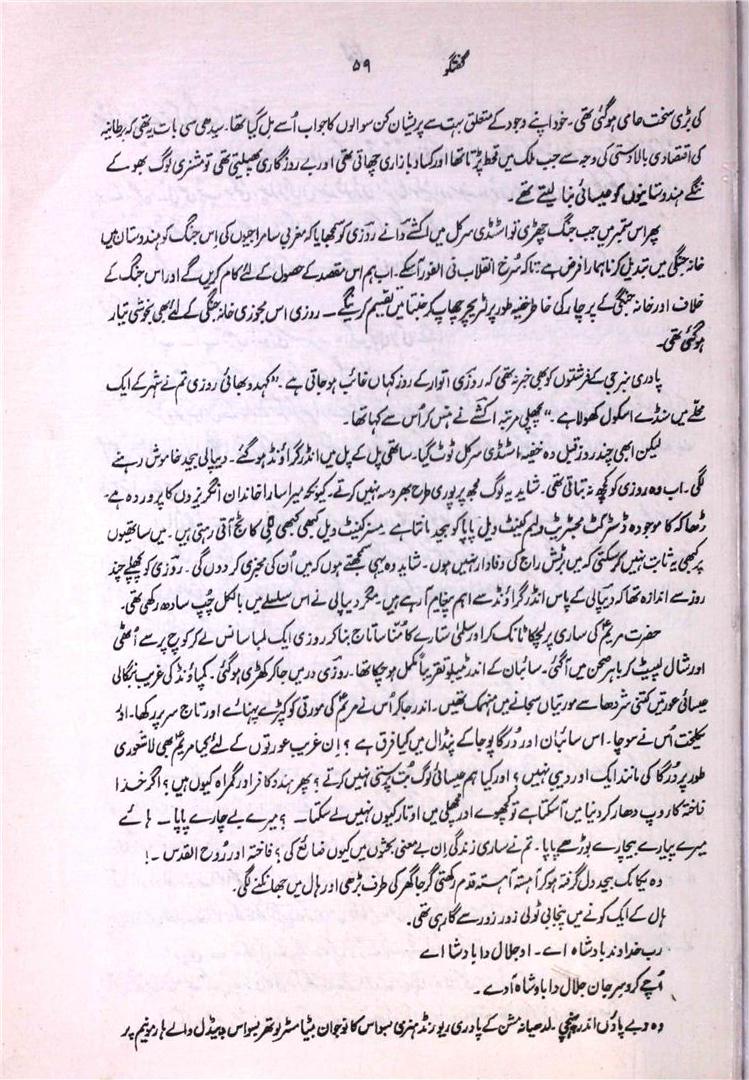 گفتگو ۵۹
کی بڑی سخت حامی ہوگئی تھی۔ خود اپنے وجود کے متعلق بہت سے پریشان کن سوالوں کا جواب اُسے مل گیا تھا۔ سیدھی سی بات یہ تھی کہ برطانیہ
کی اقتصادی بالادستی کی وجہ سے جب ملک میں قحط پڑتا تھا اور کساد بازاری چھاتی تھی اور بے روزگاری پھیلتی تھی تو مشنری لوگ بھوکے
ننگے ہندوستانیوں کو عیسائی بنا لیتے تھے۔
پھر اس ستمبر میں جب جنگ چھڑی تو اسٹڈی سرکل میں اکشے دا نے روزی کو سمجھایا کہ مغربی سامراجیوں کی اس جنگ کو ہندوستان میں
خانہ جنگی میں تبدیل کرنا ہمارا فرض ہے تاکہ سُرخ انقلاب فی الفور آسکے۔ اب ہم اس مقصد کے حصول کے لئے کام کریں گے اور اس جنگ کے
خلاف اور خانہ جنگی کے پرچار کی خاطر خفیہ طور پر لٹریچر چھاپ کر جنتا میں تقسیم کریں گے۔ روزی اس مجوزہ خانہ جنگی کے لئے بھی بخوشی تیار
ہوگئی تھی۔
پادری بنرجی کے فرشتوں کو بھی خبر نہ تھی کہ روزی اتوار کے روز کہاں غائب ہو جاتی ہے۔ "کہہ دو بھائی روزی تم نے شہر کے ایک
محلّے میں سنڈے اسکول کھولا ہے۔" پچھلی مرتبہ اکشے نے ہنس کر اُس سے کہا تھا۔
لیکن ابھی چند روز قبل وہ خفیہ اسٹڈی سرکل ٹوٹ گیا۔ ساتھی پل کے پل میں انڈر گراؤنڈ ہوگئے۔ دیپالی بیحد خاموش رہنے
لگی۔ اب وہ روزی کو کچھ نہ بتاتی تھی۔ شاید یہ لوگ مجھ پر پوری طرح بھروسہ نہیں کرتے۔ کیونکہ میرا سارا خاندان انگریزوں کا پروردہ ہے۔
ڈھاکہ کا موجودہ ڈسٹرکٹ مجسٹریٹ ولیم کینٹ ویل پاپا کو بیحد مانتا ہے۔ مسز کینٹ ویل کبھی کبھی للی کاٹج آتی رہتی ہیں۔ میں ساتھیوں
پر کبھی یہ ثابت نہیں کرسکتی کہ میں برٹش راج کی وفادار نہیں ہوں۔ شاید وہ یہی سمجھتے ہوں کہ میں اُن کی مخبری کر دوں گی۔ روزی کو پچھلے چند
روز سے اندازہ تھا کہ دیپالی کے پاس انڈر گراؤنڈ سے اہم پیغام آ رہے ہیں۔ مگر دیپالی نے اس سلسلے میں بالکل چُپ سادھ رکھی تھی۔
حضرت مریمؑ کی ساری پر لچکا ٹانک کر اور سلمٰی ستارے کا مُنّا سا تاج بنا کر روزی ایک لمبا سانس لے کر کوچ پر سے اُٹھی
اور شال لپیٹ کر باہر صحن میں آگئی۔ سائبان کے اندر ٹیبلو تقریباً مکمل ہو چکا تھا۔ روزی در میں جا کر کھڑی ہوگئی۔ کمپاؤنڈ کی غریب بنگالی
عیسائی عورتیں کتنی شردھا سے مورتیاں سجانے میں منہمک تھیں۔ اندر جا کر اُس نے مریمؑ کی مورتی کو کپڑے پہنائے اور تاج سر پر رکھا۔ اور
یکلخت اُس نے سوچا۔ اس سائبان اور دُرگا پوجا کے پنڈال میں کیا فرق ہے؟ اِن غریب عورتوں کے لئے کیا مریمؑ بھی لاشعوری
طور پر دُرگا کی مانند ایک اور دیبی نہیں؟ اور کیا ہم عیسائی لوگ بُت پرستی نہیں کرتے؟ پھر ہندو کافر اور گمراہ کیوں ہیں؟ اگر خدا
فاختہ کا روپ دھار کر دنیا میں آسکتا ہے تو کچھوے اور مچھلی میں اوتار کیوں نہیں لے سکتا۔ ؟ میرے بے چارے پاپا۔ ہائے
میرے پیارے بیچارے بوڑھے پاپا۔ تم نے ساری زندگی اِن بے معنی بحثوں میں کیوں ضائع کی؟ فاختہ اور رُوح القدس۔!
وہ یکایک بیحد دل گرفتہ ہو کر آہستہ آہستہ قدم رکھتی گرجا گھر کی طرف بڑھی اور ہال میں جھانکنے لگی۔
ہال کے ایک کونے میں پنجابی ٹولی زور زور سے گا رہی تھی۔
رب خداوند بادشاہ اے۔ او جلال دا بادشا اے
اُچے کرو سِر جان جلال دا بادشاہ آوے۔
وہ دبے پاؤں اندر پہنچی۔ لدھیانہ مشن کے پادری ریورنڈ ہنری بسواس کا نوجوان بیٹا مسٹر لوتھر بسواس پیڈل والے ہارمونیم پر